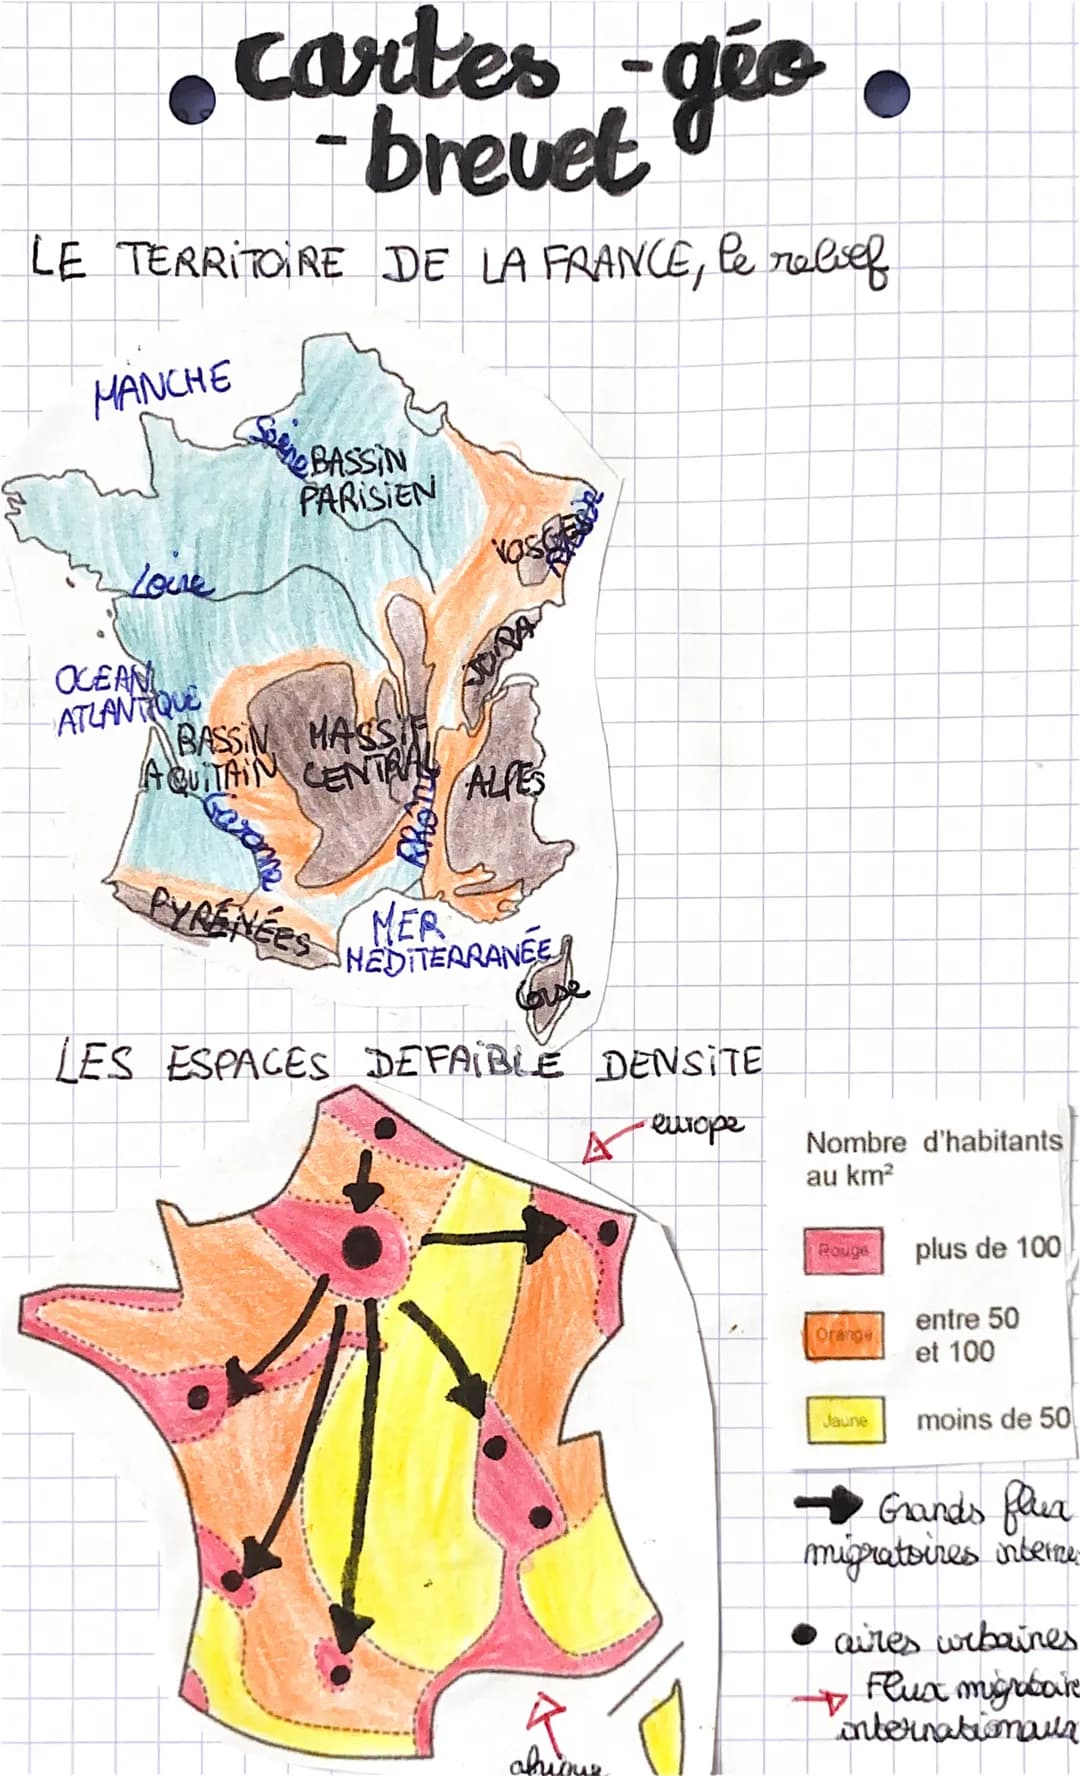 cartes -géo
-brevet
LE TERRITOIRE DE LA FRANCE, le relief
MANCHE
Seine
BASSIN
PARISIEN
VOSGES
Loire
JURA
OCEAN
ATLANTIQUE
BASSIN
AQUITAIN
MASSIF
CENTRAL
ALPES
Rhône
Garonne
PYRÉNÉES
MER
MÉDITERRANÉE
Corse
LES ESPACES DE FAIBLE DENSITE
europe
Nombre d'habitants
au km²
Rouge
plus de 100
Orange
entre 50
et 100
Jaune
moins de 50
Grands flux
migratoires interne
aires urbaines
Flux migratoire
internationaux
afrique